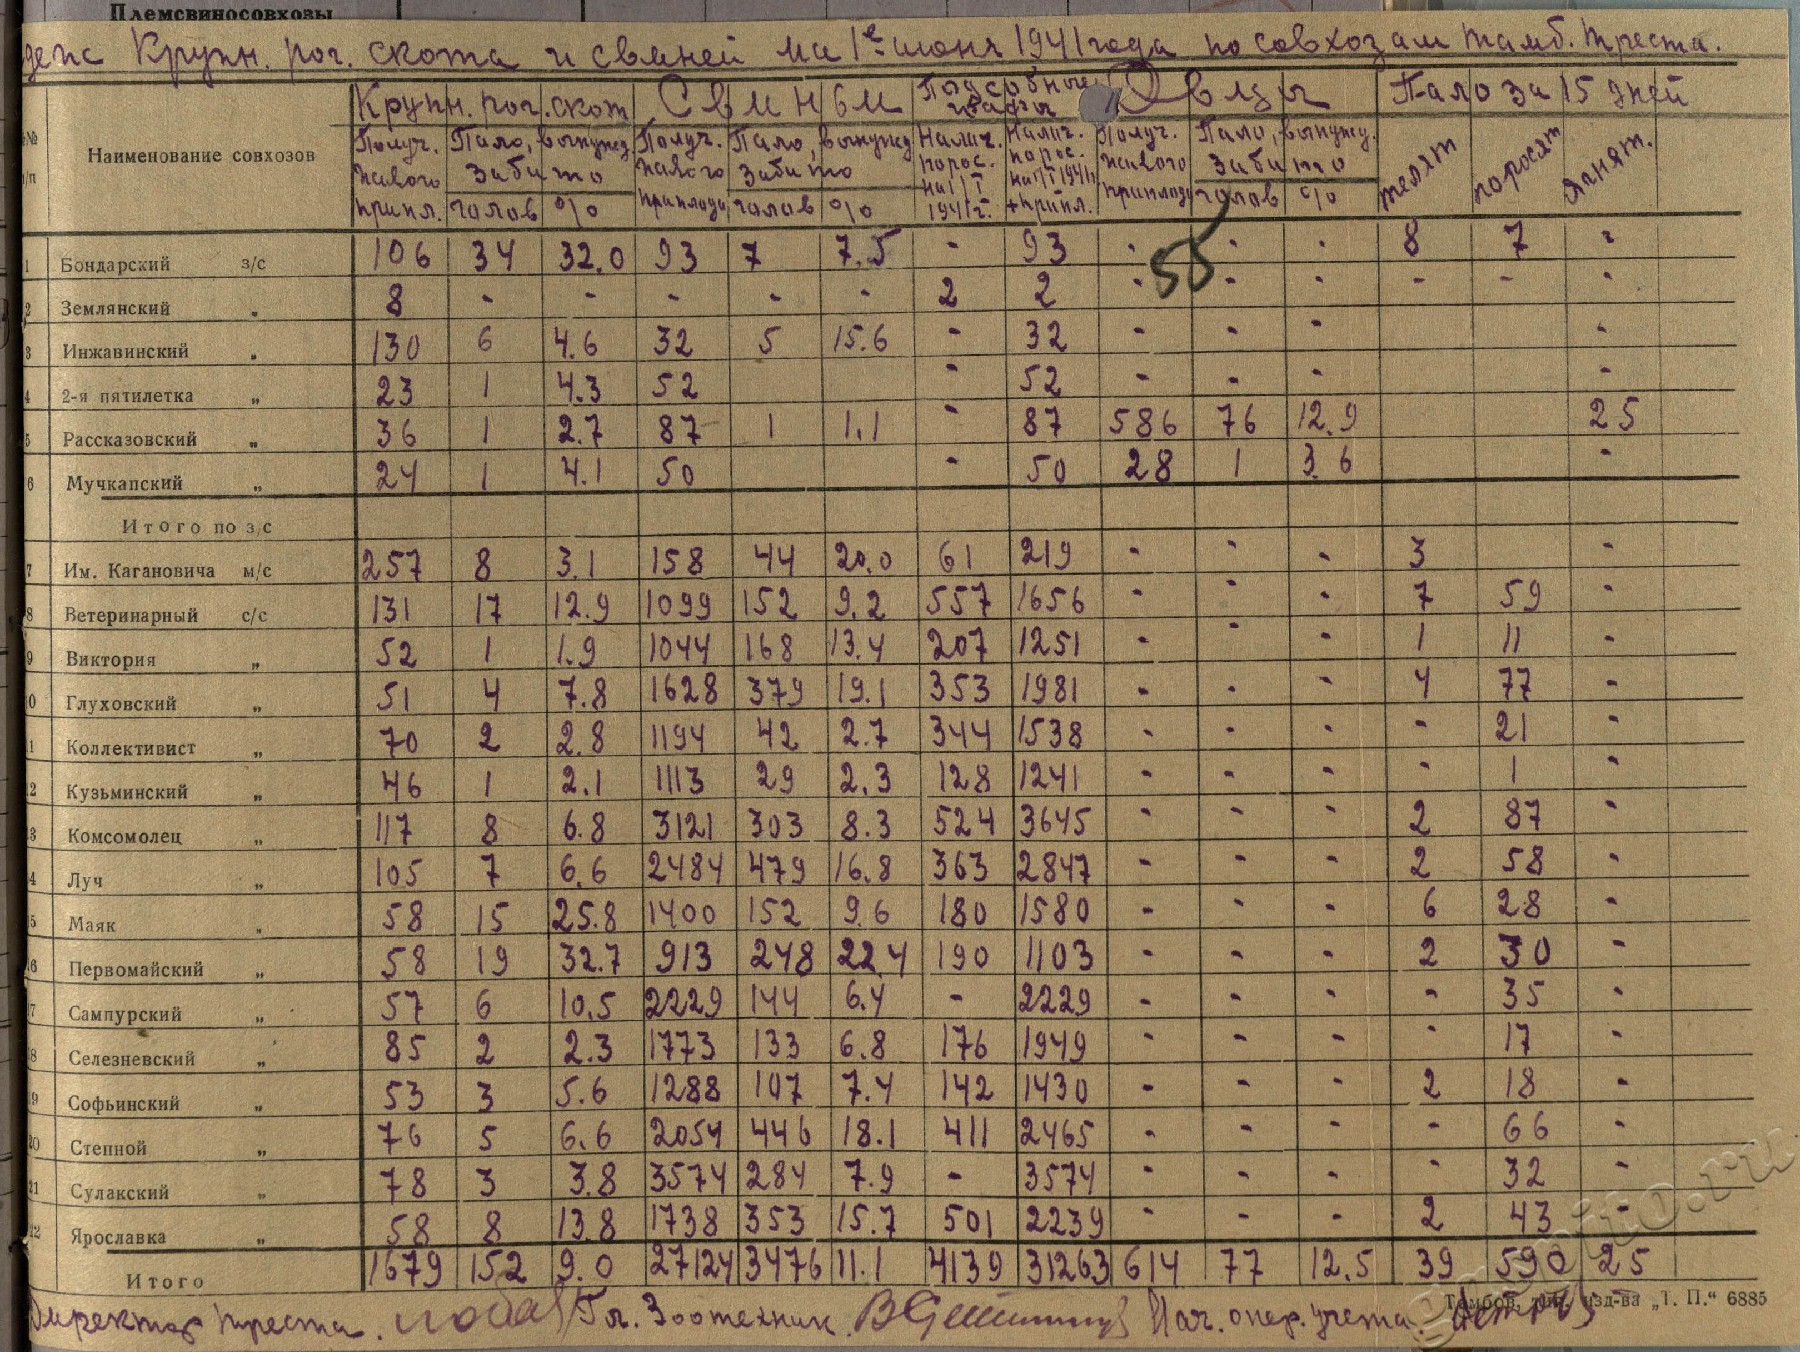 Племсвиносовхозы
Крупн. рог. скота и свиней на 1е июня 1941 года по совхозам Тамб. треста.
Крупн. рог. скот Свиньи Подсобные Овцы Пало за 15 дней
№№ п/п Наименование совхозов Получ. живого припл. Пало, вынужд. забито голов % Получ. живого приплода Пало, вынужд. забито голов % Налич. порос. на 1/I 1941 г. Налич. порос. на 1/I 1941 + припл. Получ. живого приплода Пало, вынужд. забито голов % телят поросят ягнят.
55
1 Бондарский з/с 106 34 32.0 93 7 7.5 - 93 - - - 8 7 -
2 Землянский „ 8 - - - - - 2 2 - - - - - -
3 Инжавинский „ 130 6 4.6 32 5 15.6 - 32 - - - -
4 2-я пятилетка „ 23 1 4.3 52 - 52 - - - -
5 Рассказовский „ 36 1 2.7 87 1 1.1 - 87 586 76 12.9 25
6 Мучкапский „ 24 1 4.1 50 - 50 28 1 3.6 -
Итого по з/с
7 Им. Кагановича м/с 257 8 3.1 158 44 20.0 61 219 - - - 3 -
8 Ветеринарный с/с 131 17 12.9 1099 152 9.2 557 1656 - - - 7 59 -
9 Виктория „ 52 1 1.9 1044 168 13.4 207 1251 - - - 1 11 -
10 Глуховский „ 51 4 7.8 1628 379 19.1 353 1981 - - - 4 77 -
11 Коллективист „ 70 2 2.8 1194 42 2.7 344 1538 - - - - 21 -
12 Кузьминский „ 46 1 2.1 1113 29 2.3 128 1241 - - - - 1 -
13 Комсомолец „ 117 8 6.8 3121 303 8.3 524 3645 - - - 2 87 -
14 Луч „ 105 7 6.6 2484 479 16.8 363 2847 - - - 2 58 -
15 Маяк „ 58 15 25.8 1400 152 9.6 180 1580 - - - 6 28 -
16 Первомайский „ 58 19 32.7 913 248 22.4 190 1103 - - - 2 30 -
17 Сампурский „ 57 6 10.5 2229 144 6.4 - 2229 - - - - 35 -
18 Селезневский „ 85 2 2.3 1773 133 6.8 176 1949 - - - - 17 -
19 Софьинский „ 53 3 5.6 1288 107 7.4 142 1430 - - - 2 18 -
20 Степной „ 76 5 6.6 2054 446 18.1 411 2465 - - - - 66 -
21 Сулакский „ 78 3 3.8 3574 284 7.9 - 3574 - - - - 32 -
22 Ярославка „ 58 8 13.8 1738 353 15.7 501 2239 - - - 2 43 -
Итого 1679 152 9.0 27124 3476 11.1 4139 31263 614 77 12.5 39 590 25
Тамбов, тип. изд-ва „Т. П.“ 6885
Директор треста. Гл. Зоотехник. Нач. опер. учета.